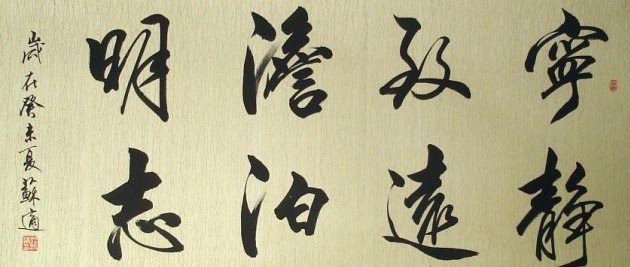 寧靜
致遠
澹泊
明志
歲在癸未夏蘇適